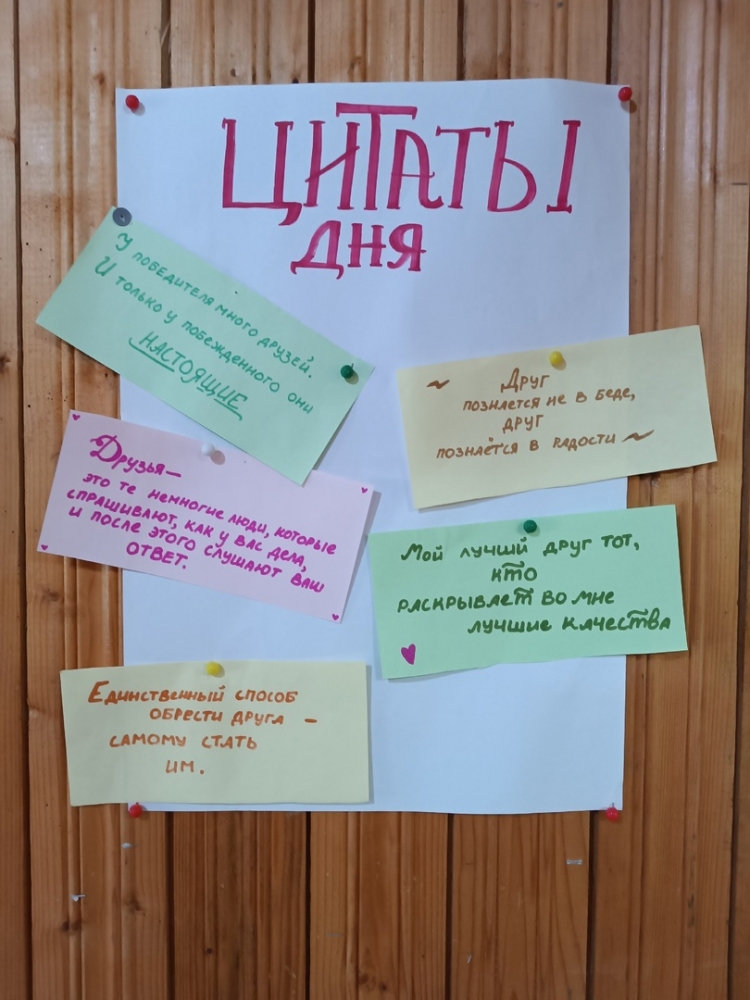 ЦИТАТЫ
ДНЯ
У победителя много друзей.
И только у побежденного они
НАСТОЯЩИЕ
Друг
познается не в беде,
друг
познаётся в радости
Друзья—
это те немногие люди, которые
спрашивают, как у вас дела,
и после этого слушают ваш
ответ.
Мой лучший друг тот,
кто
раскрывает во мне
лучшие качества
Единственный способ
обрести друга —
самому стать
им.